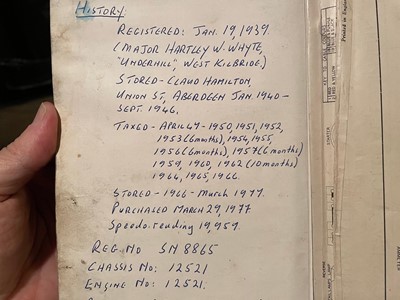 History.
Registered: Jan. 19, 1939.
(Major Hartley W. Whyte,
"Underhill", West Kilbride.)
Stored - Claud Hamilton,
Union St, Aberdeen Jan. 1940 -
Sept. 1946.
Taxed - April 47 - 1950, 1951, 1952,
1953 (6 months), 1954, 1955,
1956 (6 months), 1957 (6 months)
1959, 1960, 1962 (10 months)
1964, 1965, 1966.
Stored - 1966 - March 1977.
Purchased March 29, 1977
Speedo. reading 19,959.
Reg. No SN 8865
Chassis No: 12521
Engine No: 12521.
Printed in England